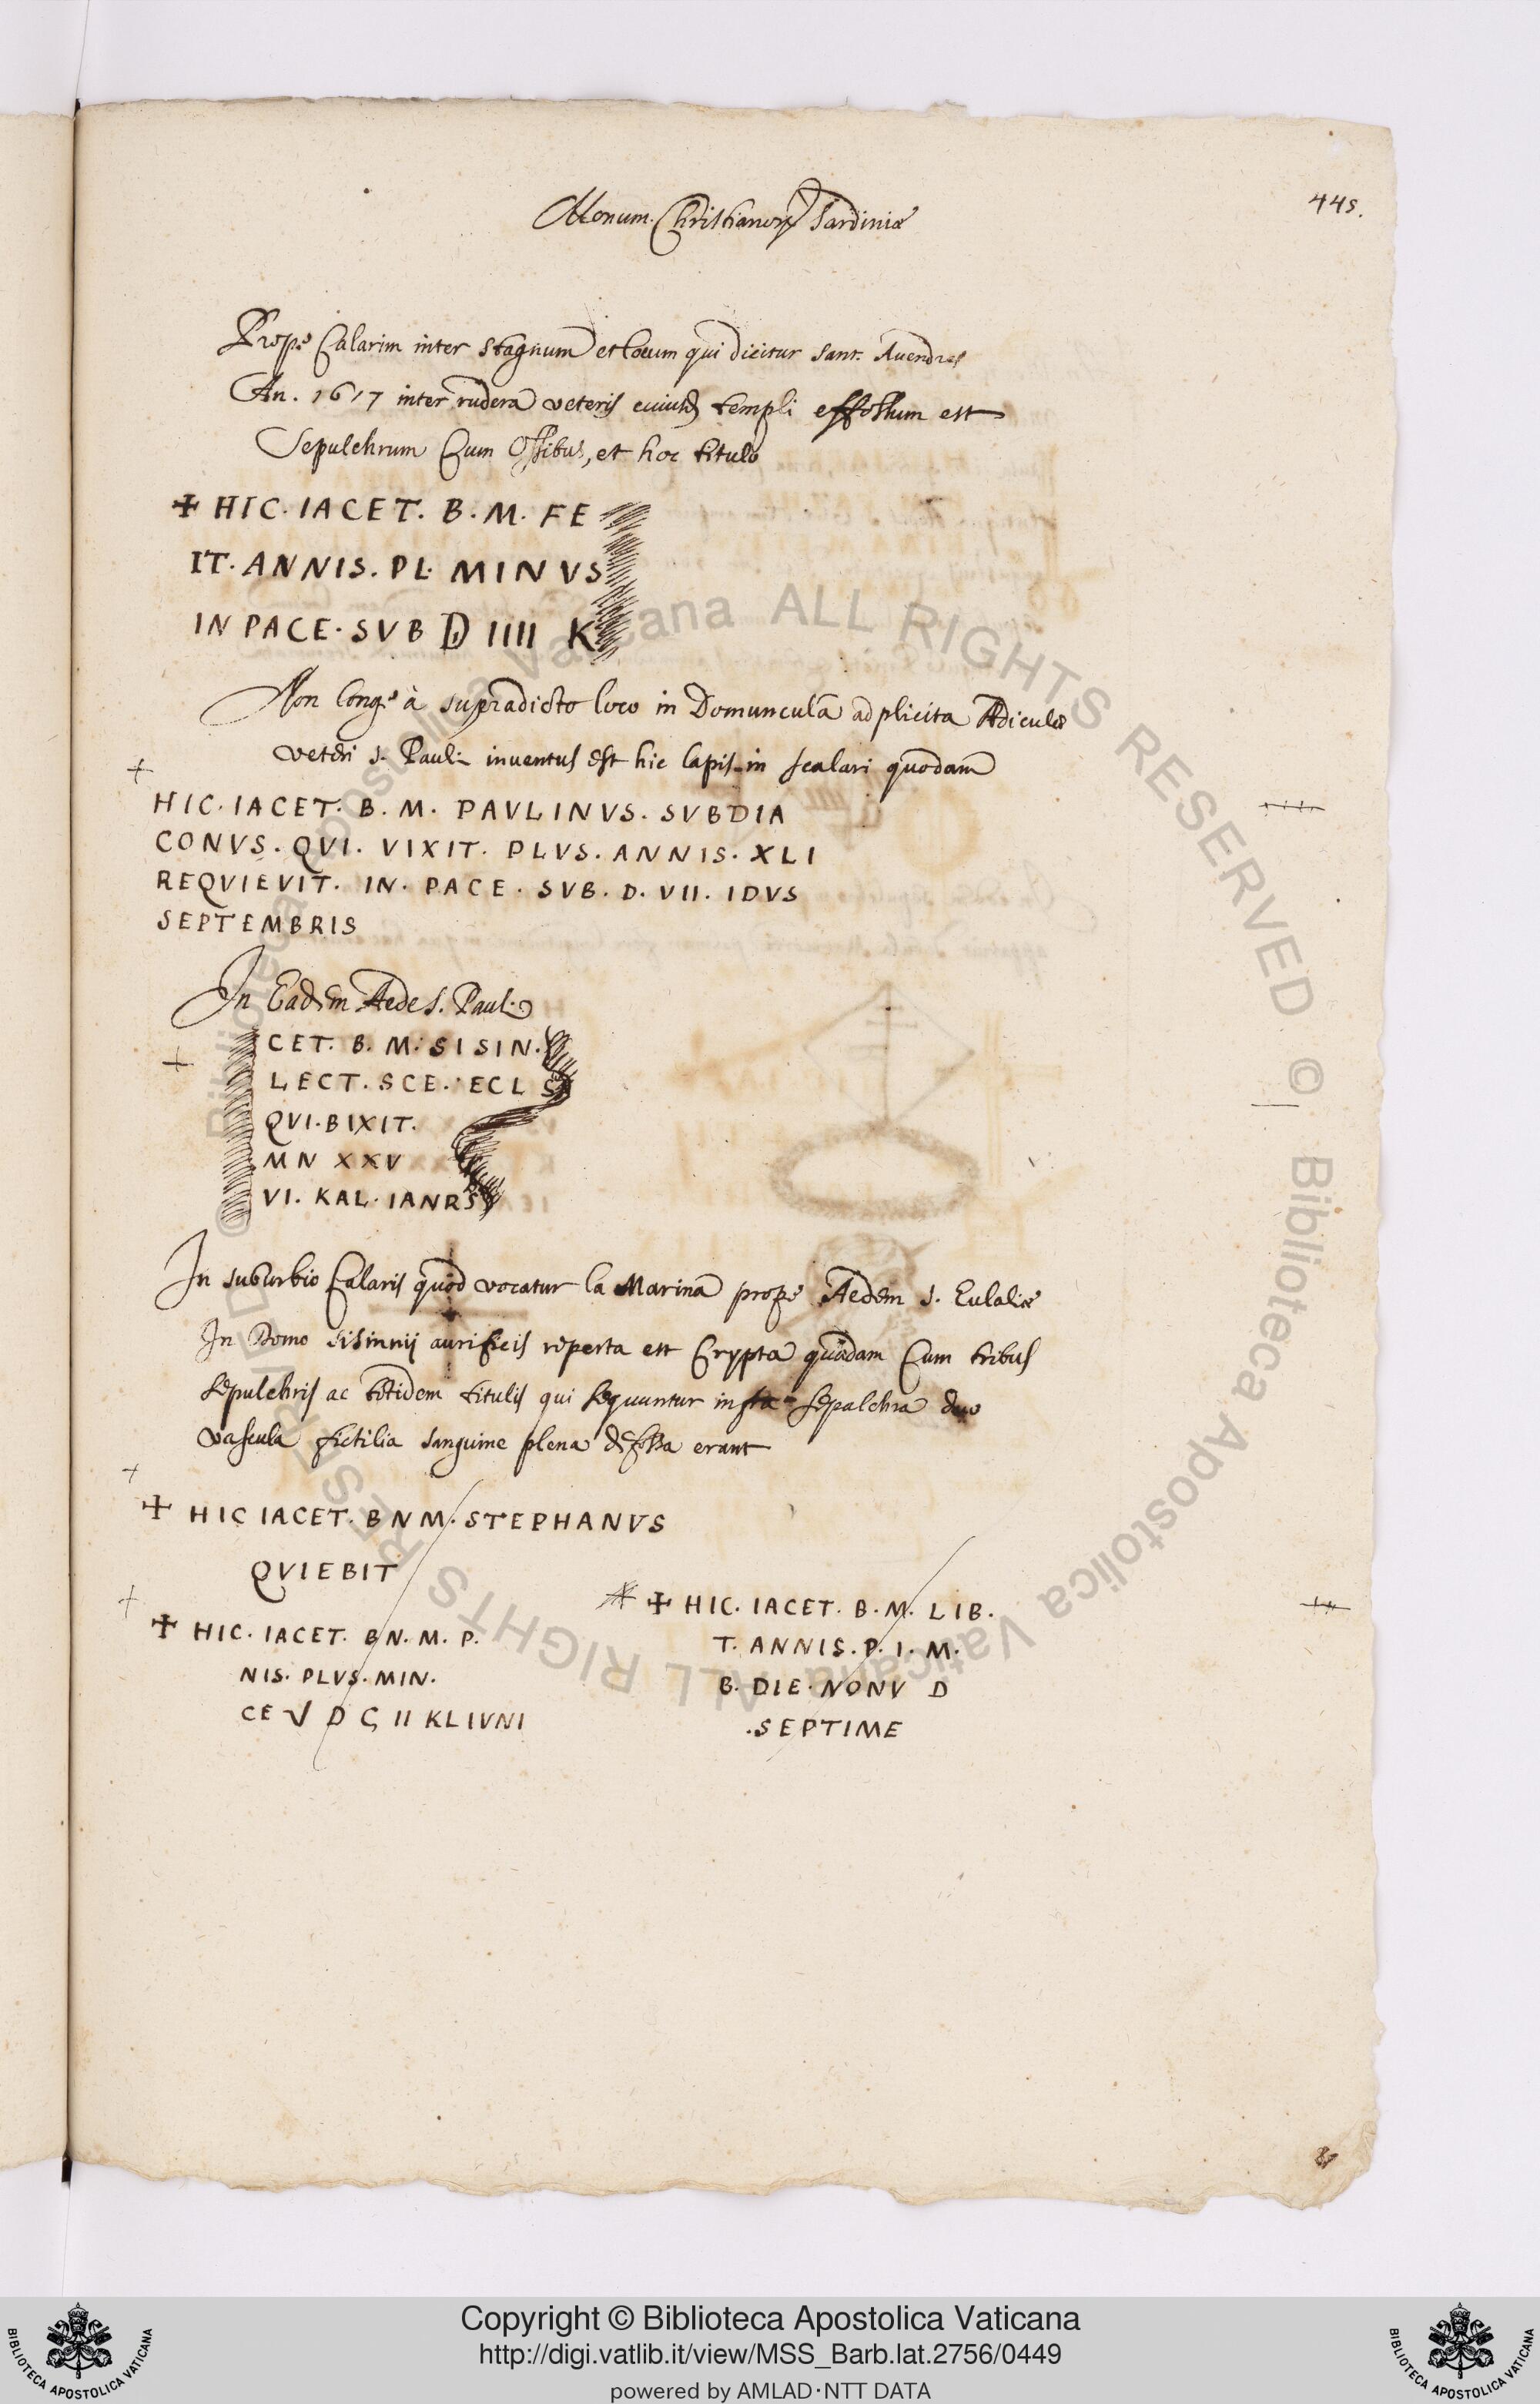 445.
Monum. Christianorꝝ Sardiniæ
Prope Calarim inter stagnum et locum qui dicitur sant. Auendres
An. 1617 inter rudera veteris cuiusd templi effossum est
Sepulchrum Cum Ossibus, et hoc titulo
✠ HIC. IACET. B. M. FE
IT. ANNIS. PL. MINVS
IN PACE. SVB D IIII K
Non longe à supradicto loco in Domuncula adplicita Ædiculæ
veteri S. Pauli inventus est hic lapis in scalari quodam
HIC. IACET. B. M. PAVLINVS. SVBDIA
CONVS. QVI. VIXIT. PLVS. ANNIS. XLI
REQVIEVIT. IN. PACE. SVB. D. VII. IDVS
SEPTEMBRIS
In Eadem Aede S. Pauli
CET. B. M. SISIN.
LECT. SCE. ECLS
QVI. BIXIT.
MN XXV
VI. KAL. IANRS
In suburbio Calaris quod vocatur la Marina prope Aedem S. Eulaliæ
In Domo Sisinnij aurificis reperta est Crypta quadam Cum tribus
sepulchris ac totidem titulis qui sequuntur sepulchra duo
vascula fictilia sanguine plena defossa erant
✠ HIC IACET. BNM. STEPHANVS
QVIEBIT
✠ HIC. IACET. BN. M. P.
NIS. PLVS. MIN.
CE √ D Ç II KLIVNI
✠ HIC. IACET. B. M. LIB.
T. ANNIS. P. I. M.
B. DIE. NONV D
.SEPTIME
© Biblioteca Apostolica Vaticana ALL RIGHTS RESERVED © Biblioteca Apostolica Vaticana ALL RIGHTS RESERVED
BIBLIOTECA APOSTOLICA VATICANA
Copyright © Biblioteca Apostolica Vaticana
http://digi.vatlib.it/view/MSS_Barb.lat.2756/0449
powered by AMLAD·NTT DATA
BIBLIOTECA APOSTOLICA VATICANA